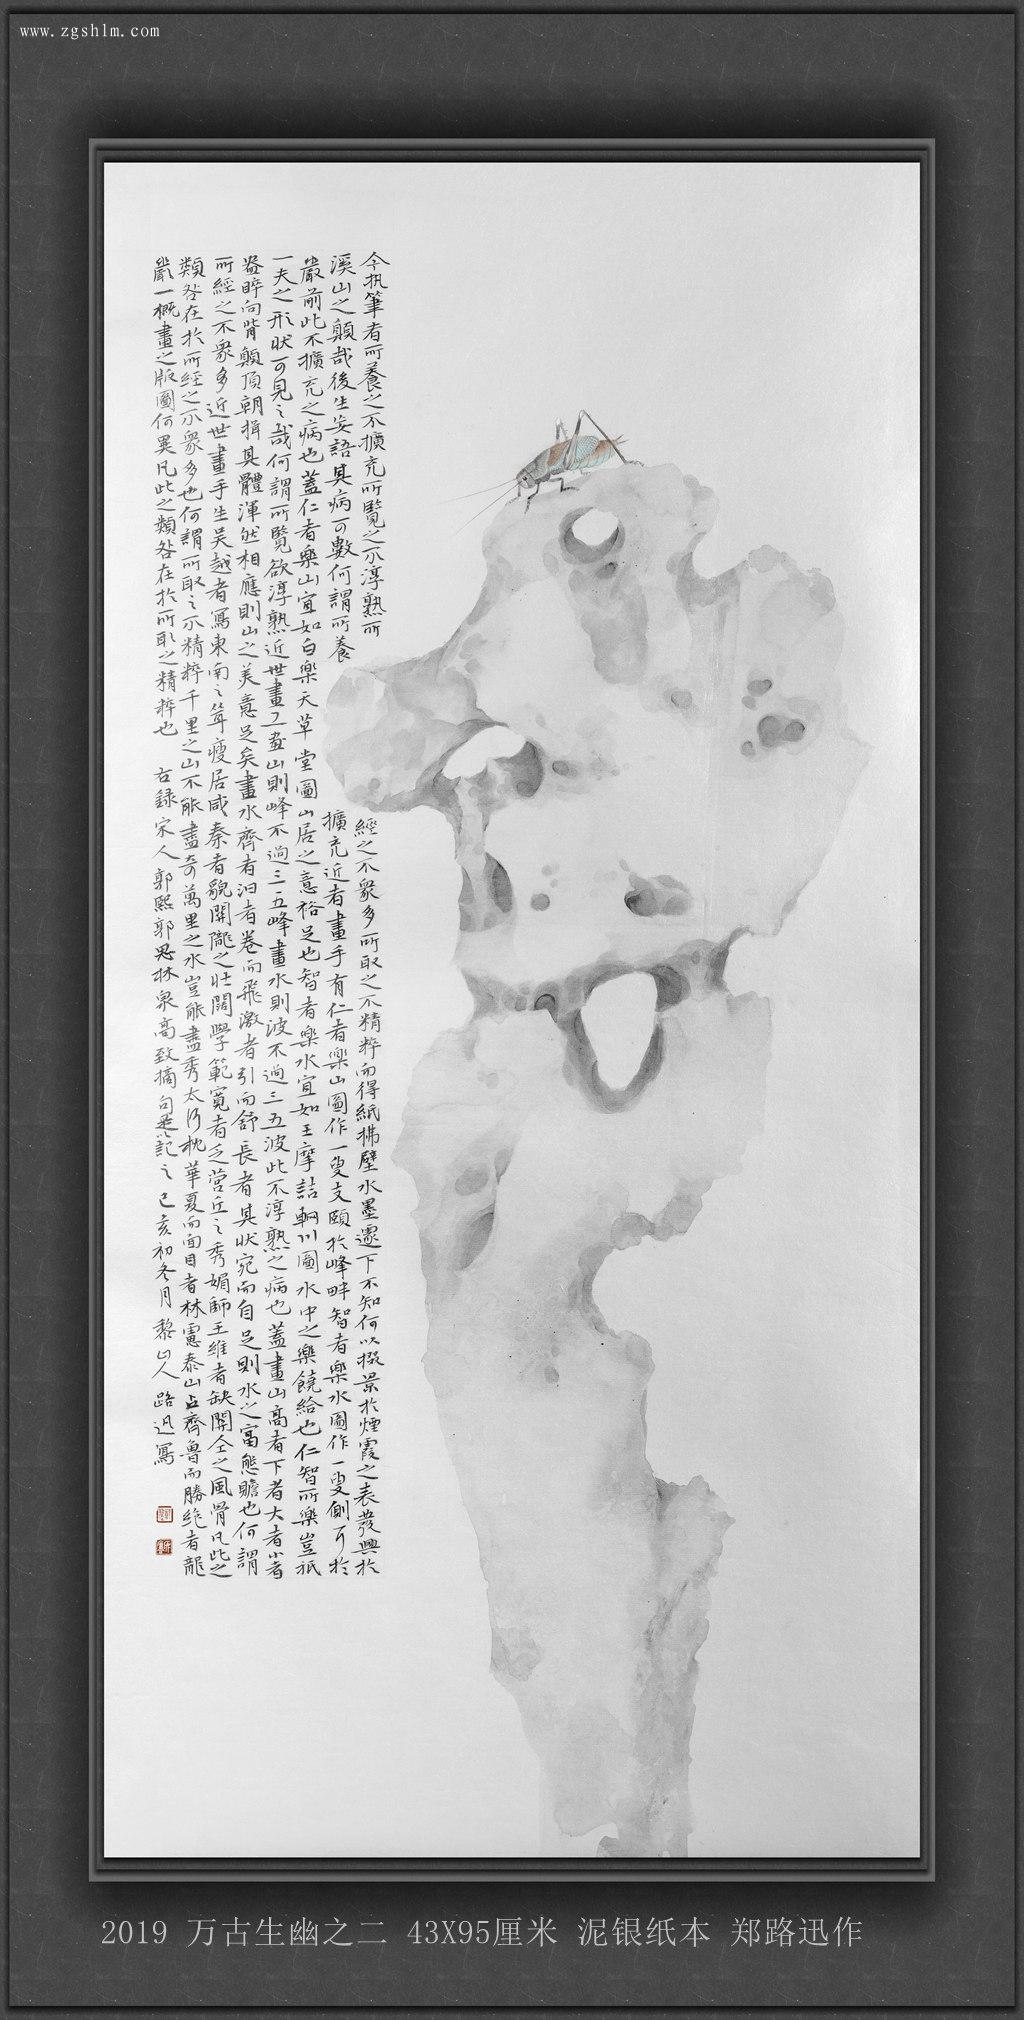 www.zgshlm.com
今執筆者所養之不擴充所覽之不淳熟所經之不衆多所取之不精粹而得紙拂壁水墨遽下不知何以掇景於煙霞之表發興於
溪山之顛哉後生妄語其病可數何謂所養擴充近者畫手有仁者樂山圖作一叟支頤於峰畔智者樂水圖作一叟側耳於
巖前此不擴充之病也蓋仁者樂山宜如白樂天草堂圖山居之意裕足也智者樂水宜如王摩詰輞川圖水中之樂饒給也仁智所樂豈祇
一夫之形狀可見之哉何謂所覽欲淳熟近世畫工畫山則峰不過三五峰畫水則波不過三五波此不淳熟之病也蓋畫山高者下者大者小者
盎睟向背顛頂朝揖其體渾然相應則山之美意足矣畫水齊者汩者卷而飛激者引而舒長者其狀宛而自足則水之富態贍也何謂
所經之不衆多近世畫手生吳越者寫東南之聳瘦居咸秦者貌關隴之壯闊學範寬者乏營丘之秀媚師王維者缺關仝之風骨凡此之
類咎在於所經之不衆多也何謂所取之不精粹千里之山不能盡奇萬里之水豈能盡秀太行枕華夏而面目者林慮泰山占齊魯而勝絶者龍
巖一概畫之版圖何異凡此之類咎在於所取之精粹也 右錄宋人郭熙郭思林泉高致摘句是記之己亥初冬月黎山人路迅寫
2019 万古生幽之二 43X95厘米 泥银纸本 郑路迅作